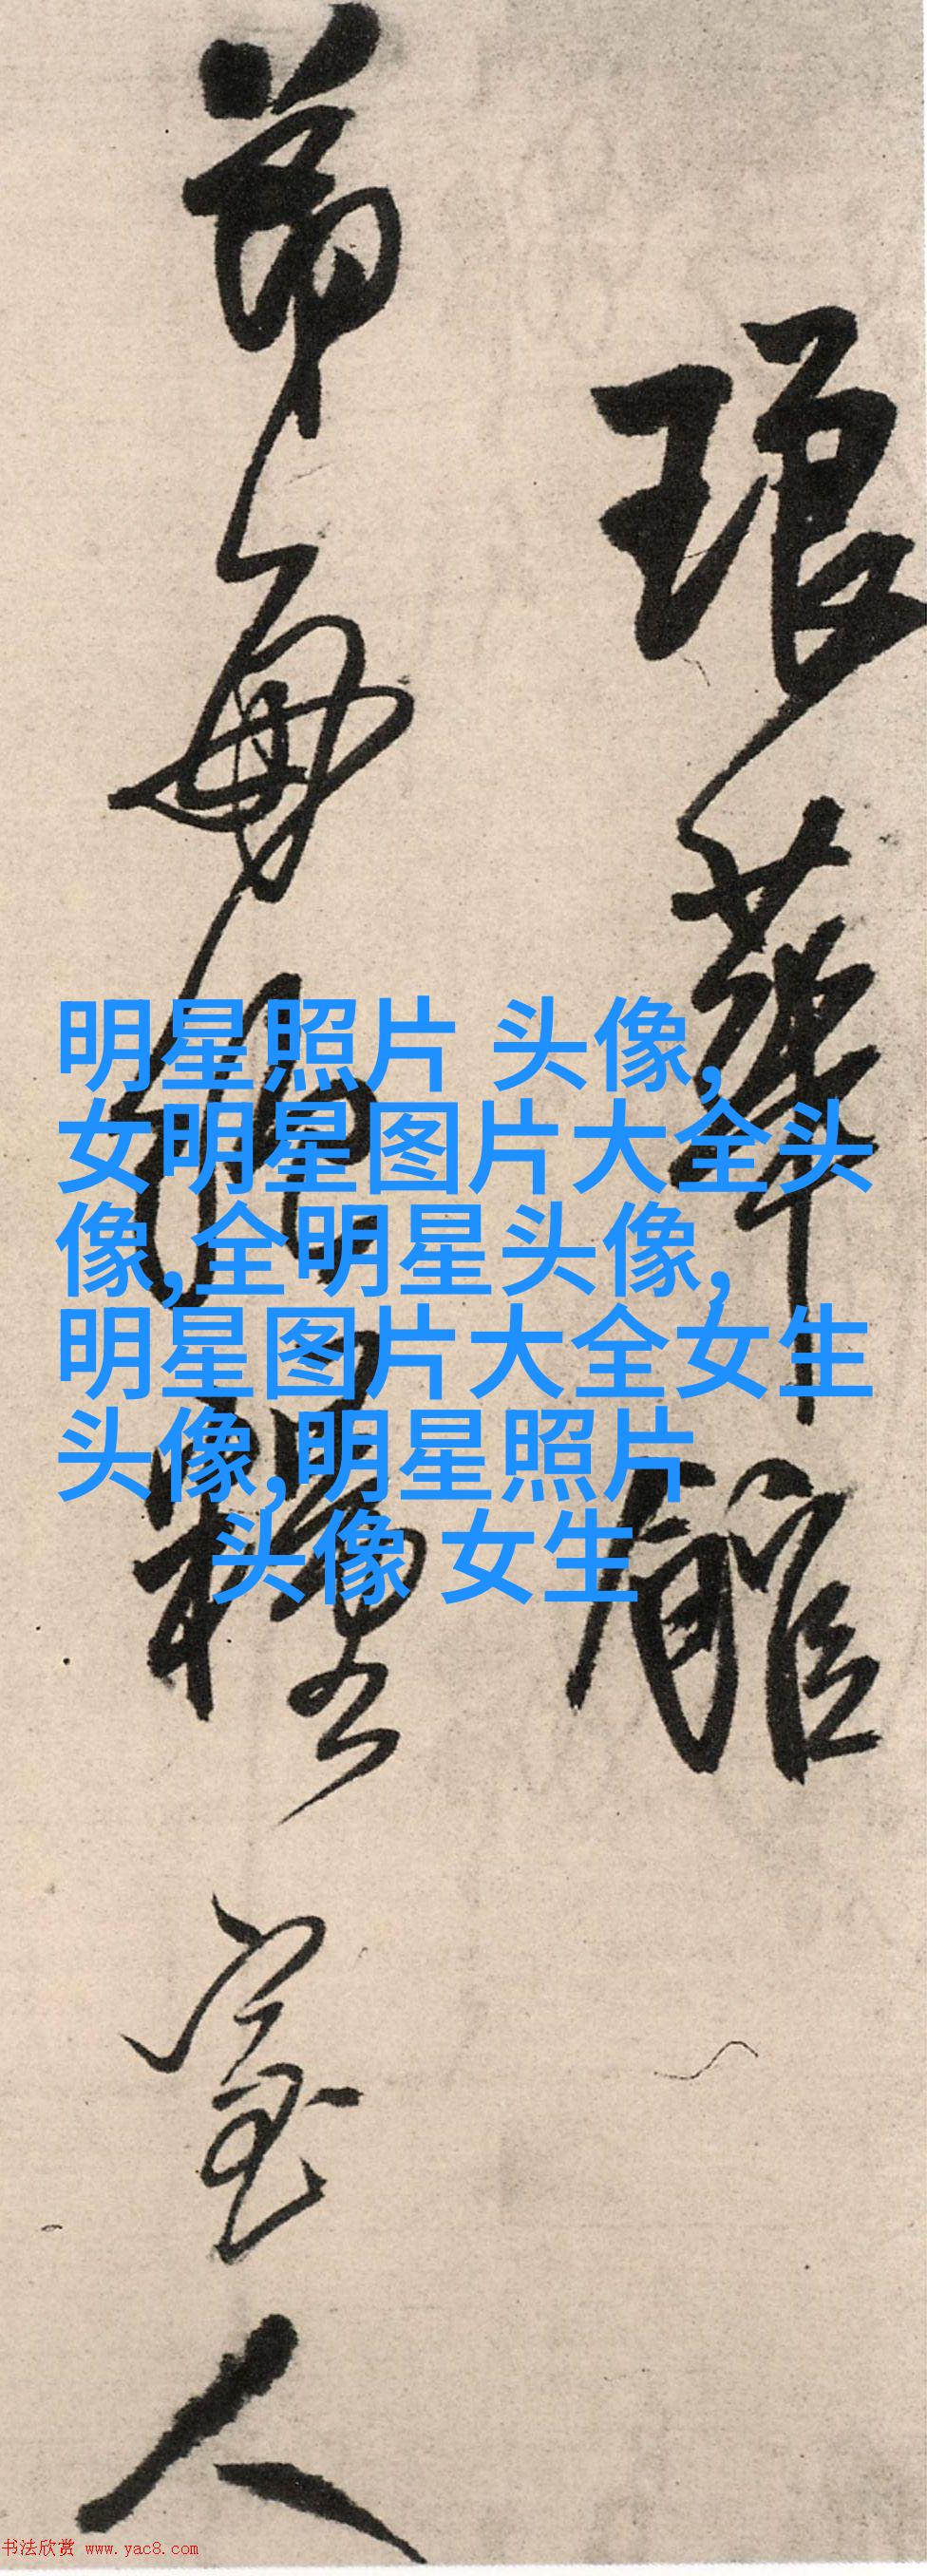 琅華館
糧 人
明星照片 头像,
女明星图片大全头
像,全明星头像,
明星图片大全女生
头像,明星照片
头像 女生
书法欣赏 www.yac8.com